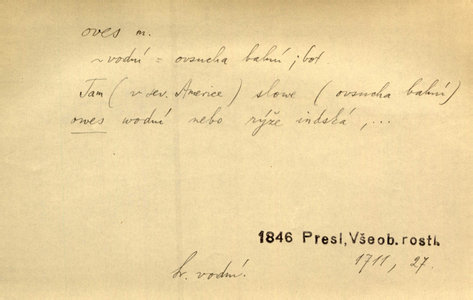 oves m.
~ vodní = ovsucha bahní; bot
Tam (v sev. Americe) slowe (ovsucha bahní)
owes wodní nebo rýže indská, ...
1846 Presl, Všeob. rostl.
1711, 27.
sv. vodní.